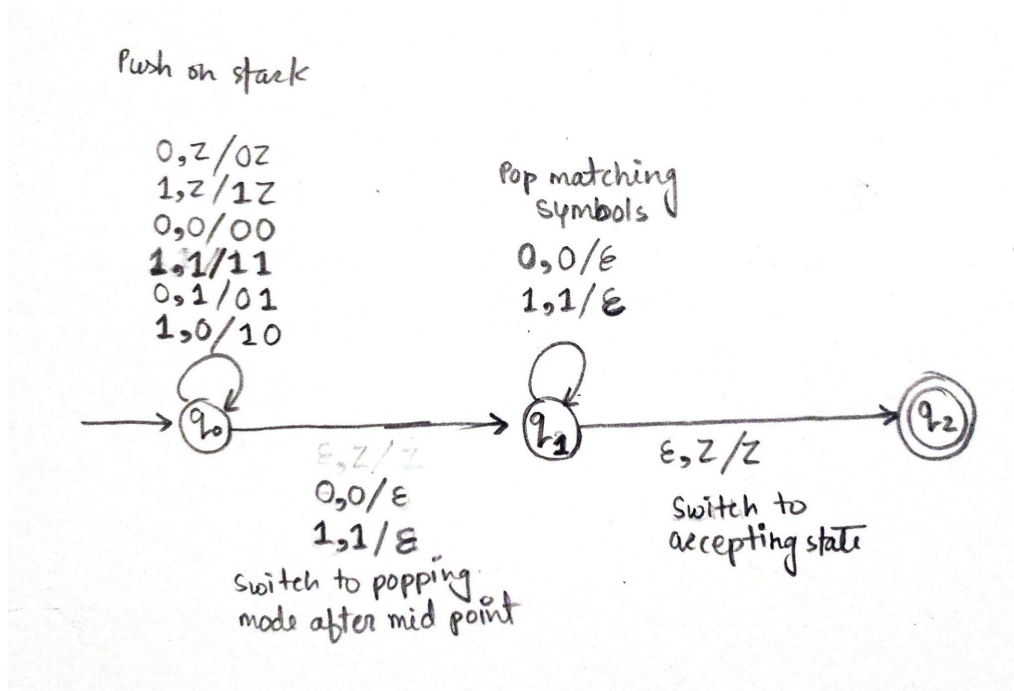 Push on stack
0,Z/0Z
1,Z/1Z
0,0/00
1,1/11
0,1/01
1,0/10
Pop matching
symbols
0,0/ε
1,1/ε
q₀
q₁
q₂
ε,Z/Z
0,0/ε
1,1/ε
Switch to popping
mode after mid point
ε,Z/Z
Switch to
accepting state